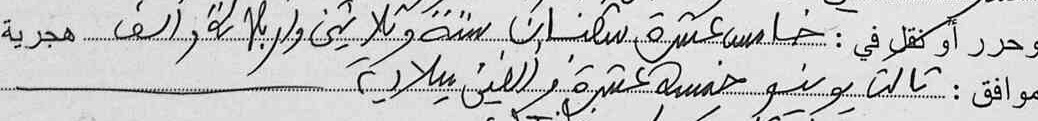 وحرر أو نقل في : خامس عشرة شعبان سنة وثلاثين واربعمائة والف هجرية
موافق : ثالث يونيو خمسة عشرة والفين ميلادية